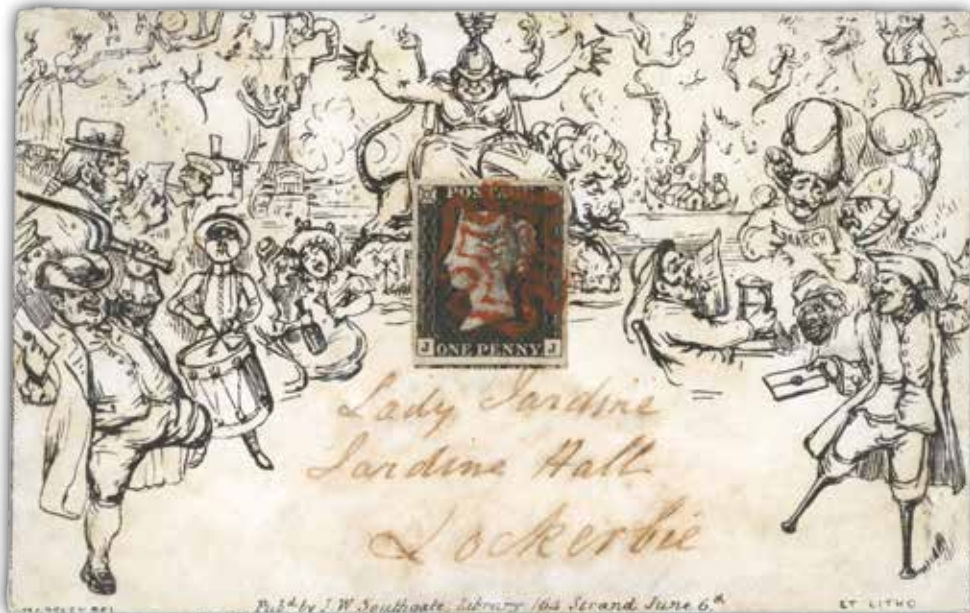 POSTAGE
MARCH
J ONE PENNY J
Lady Jardine
Jardine Hall
Lockerbie
Pubd. by J. W. Southgate, Library 164 Strand June 6th
ET LITHO